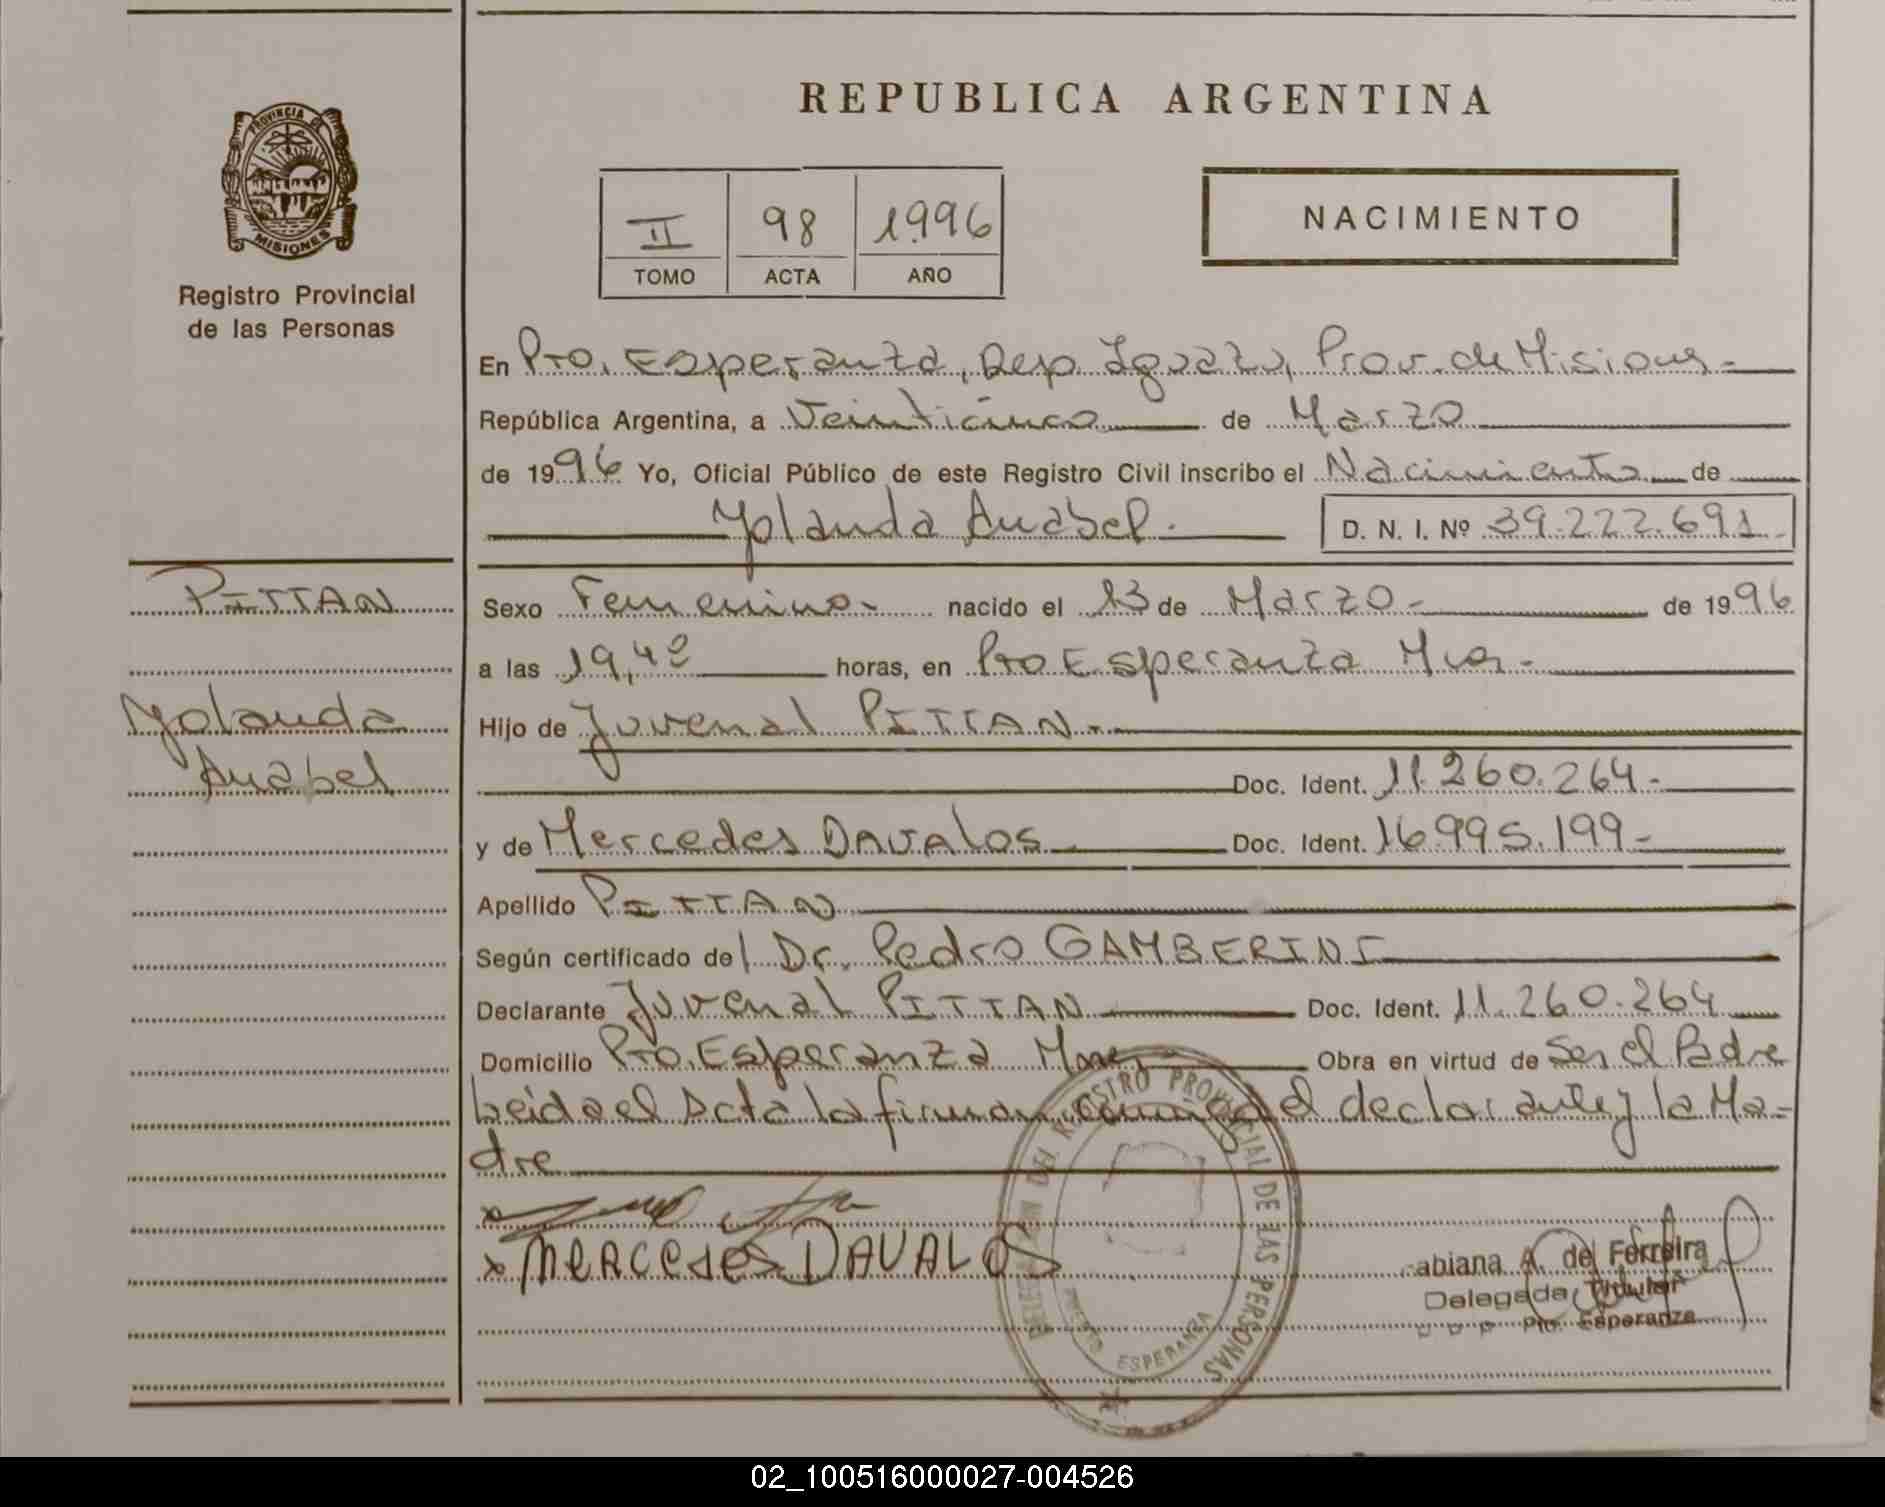 REPUBLICA ARGENTINA
PROVINCIA DE
MISIONES
Registro Provincial
de las Personas
II 98 1996
TOMO ACTA AÑO
NACIMIENTO
En Pto. Esperanza, Dep. Iguazu, Prov. de Misiones -
República Argentina, a Veinticinco de Marzo
de 1996 Yo, Oficial Público de este Registro Civil inscribo el Nacimiento de
Yolanda Anabel. D. N. I. Nº 39.222.691.
PITTAN
Yolanda
Anabel
Sexo Femenino- nacido el 13 de Marzo - de 1996
a las 19,40 horas, en Pto Esperanza Mnes -
Hijo de Juvenal PITTAN.-
Doc. Ident. 11.260.264.-
y de Mercedes DAVALOS Doc. Ident. 16.995.199-
Apellido PITTAN
Según certificado del Dr. Pedro GAMBERINI
Declarante Juvenal PITTAN Doc. Ident. 11.260.264
Domicilio Pto. Esperanza Mnes. Obra en virtud de Ser el Padre
Leida el Acta la firman conmigo el declarante y la Ma-
dre
x
x MERCEDES DAVALOS
DEL REGISTRO PROVINCIAL DE LAS PERSONAS
PUERTO ESPERANZA
abiana A. de Ferreira
Delegada Titular
Pto. Esperanza
02_100516000027-004526